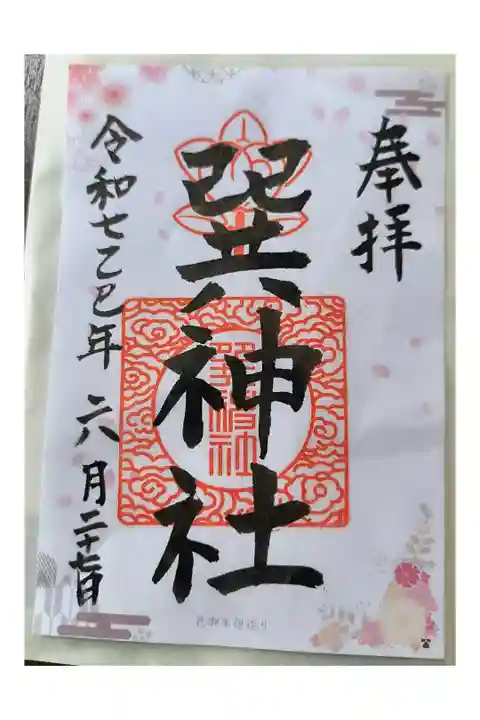 奉拝
巽神社
令和七乙巳年 六月二十七日